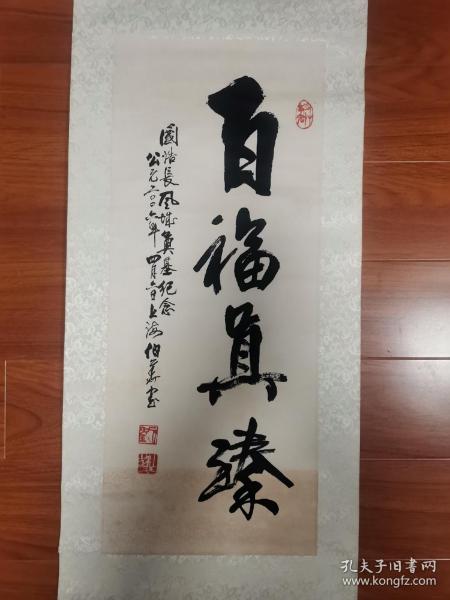 百福真臻
國浩長風城奠基紀念
公元二〇〇六年四月六日上海伯華書
孔夫子旧书网
www.kongfz.com